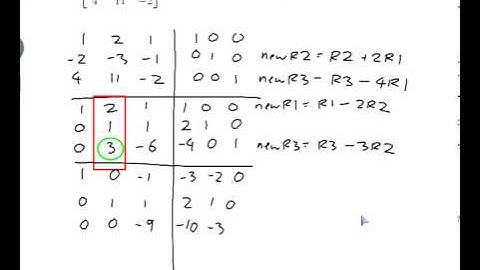 4 11 -2
1 2 1 1 0 0
-2 -3 -1 0 1 0 newR2 = R2 + 2R1
4 11 -2 0 0 1 newR3 - R3 - 4R1
1 2 1 1 0 0 newR1 = R1 - 2R2
0 1 1 2 1 0
0 3 -6 -4 0 1 newR3 = R3 - 3R2
1 0 -1 -3 -2 0
0 1 1 2 1 0
0 0 -9 -10 -3